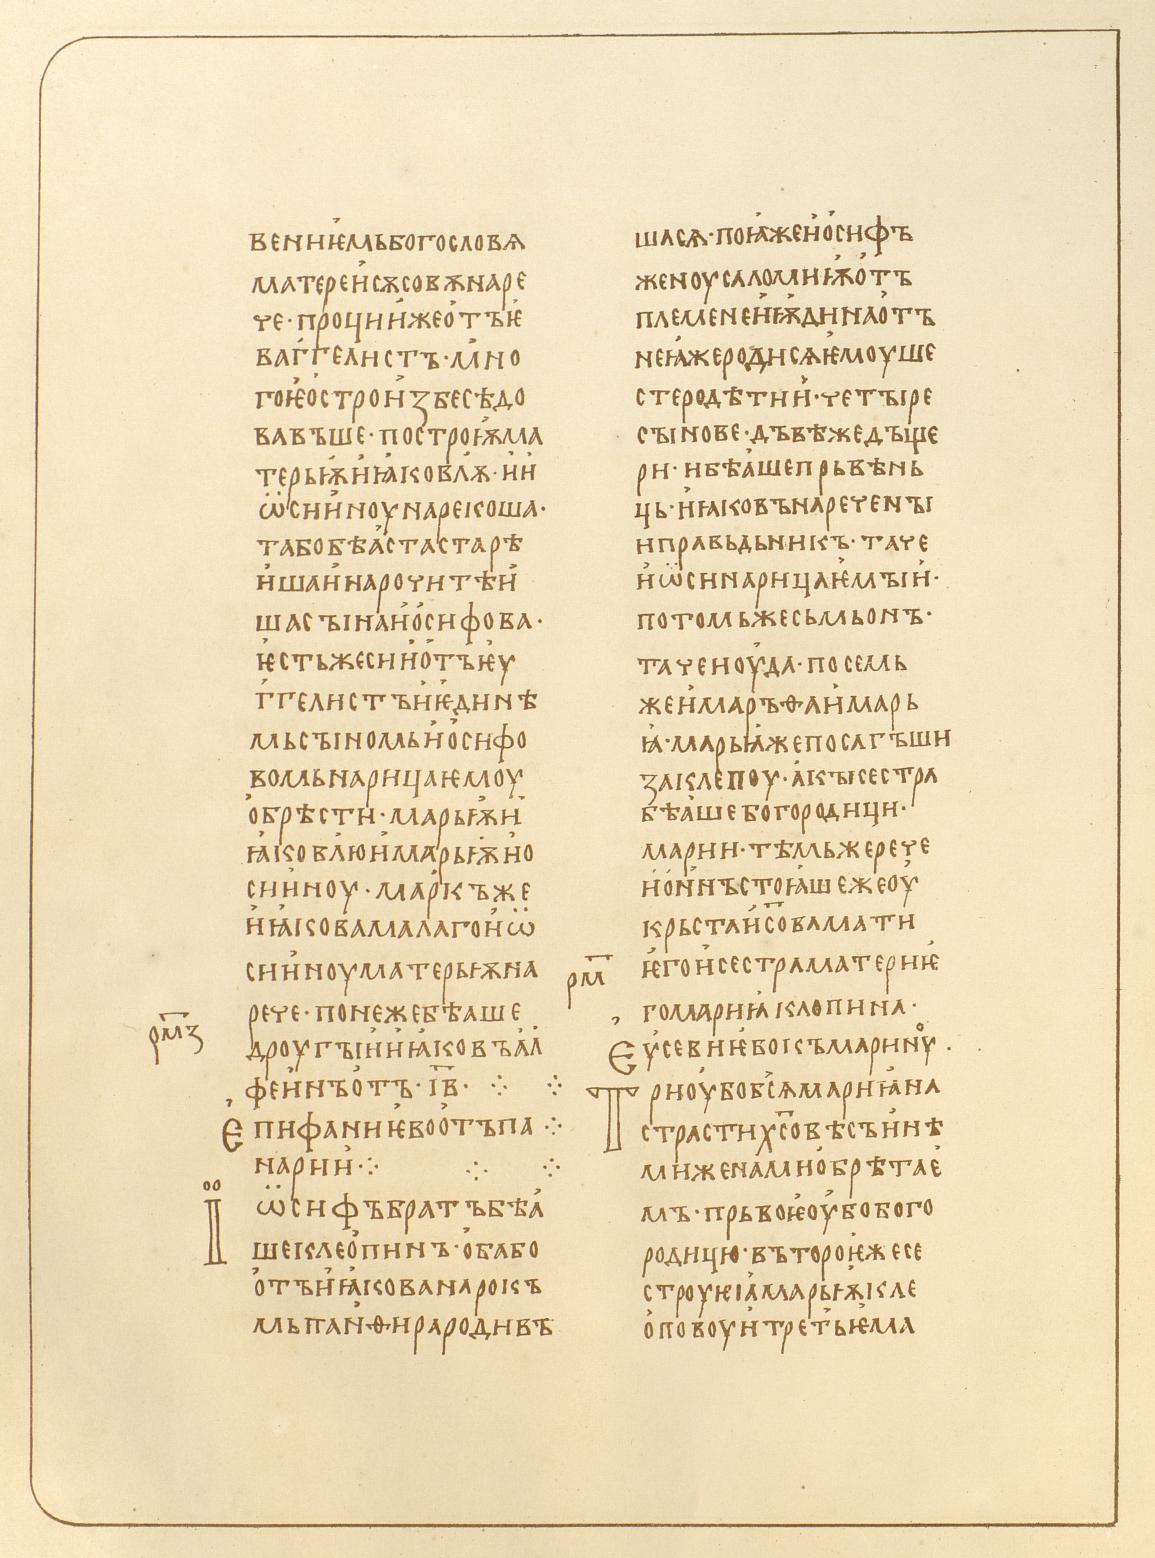 вениѥмьбогословѧ
матереисѫсовѫнаре
че·процииижеотъѥ
ваггелистъ·мно
гоѥостроиꙁбесѣдо
вавъше·построѭма
терьѭиꙗковлѫ·ии
ѡсииноунарекоша·
табобѣастастарѣ
ишаинарочитѣи
шасꙑнаиосифова·
ѥстьжесииотъѥу
ггелистъиѥдинѣ
мьсꙑномьиосифо
вомьнарицаѥмоу
обрѣсти·марьѭи
ꙗковлюимарьѭио
сииноу·маркъже
иꙗковамалагоиѡ
сииноуматерьѭна
рече·понежебѣаше
рм꙯з
другꙑиꙗковъал
феинъотъ·і꙯в·
епифаниѥвоотъпа
нарии·
їѡсифъбратъбѣа
шеклеопинъ·обабо
отъиꙗкованарокъ
мьпанѳирародивъ
шасѧ·поꙗжеиосифъ
женоусаломиѭотъ
племенеиѭдинаотъ
неꙗжеродисѧѥмоуше
стеродѣтии·четꙑре
сꙑнове·дъвѣжедъще
ри·ибѣашепрьвѣнь
ць·иꙗковънареченꙑ
иправьдьникъ·таче
иѡсинарицаѥмꙑи·
потомьжесьмьонъ·
таченоуда·посемь
жеимаръѳаимарь
ꙗ·марьꙗжепосагъши
ꙁаклепоу·акꙑсестра
бѣашебогородици·
марии·тѣмьжерече
иоиинъстоꙗшежеоу
крьстаис꙯овамати
рм꙯
ѥгоисестраматериѥ
гомариꙗклопина·
еусевиѥвокъмариноу·
триоубобсѧмариꙗна
страстихс꙯овѣсъинѣ
миженамиобрѣтае
мъ·прьвоѥоубобого
родицю·вътороѥжесе
строуѥꙗмарьѭкле
оповоуитретьѥма